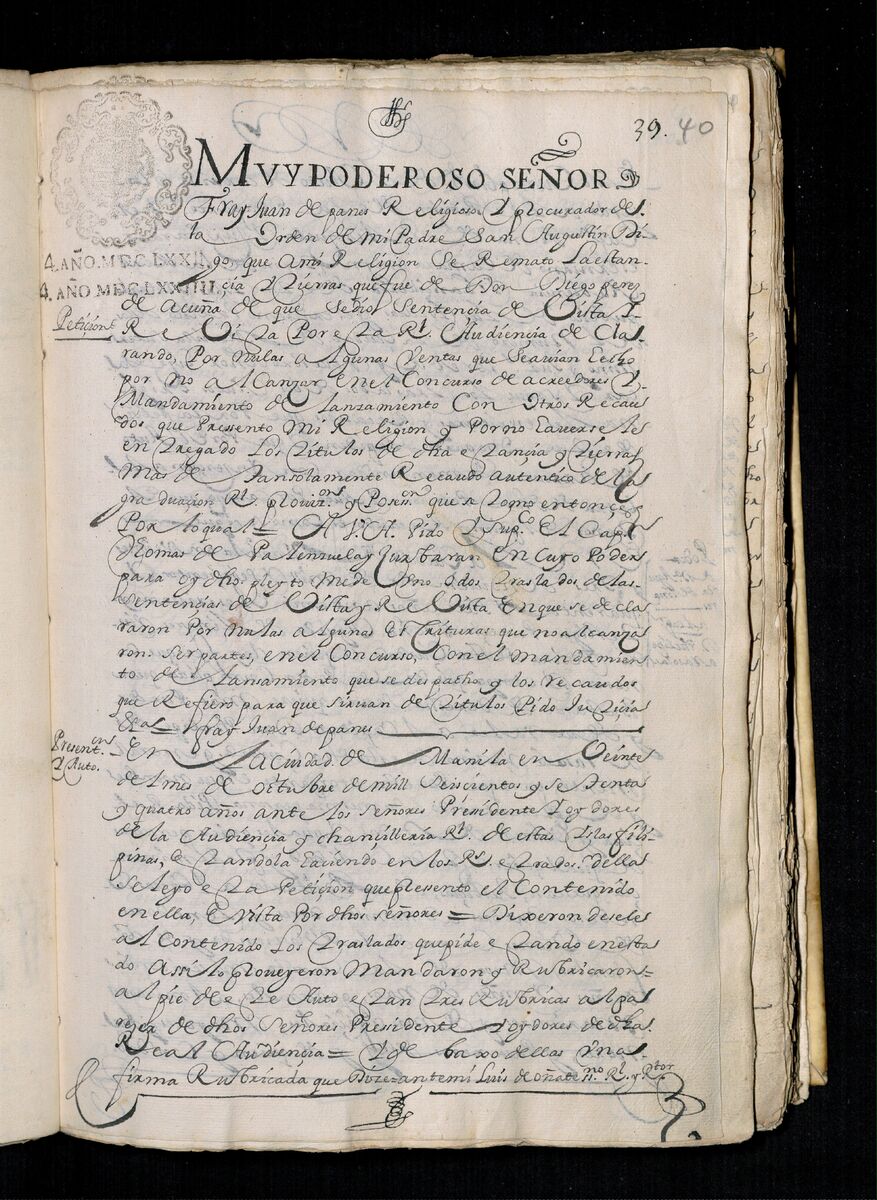 39. 40
MVY PODEROSO SEÑOR.
Fray Juan de panes Religioso, Y procurador de
la Orden de mi Padre San Augustin Di
4. AÑO. MDCLXXIII.
go que ami Religion se Remato La estan
4. AÑO. MDCLXXIIII.
cia y tierras que fue de Don Diego perez
de acuña de que sedio sentencia de Vista Y
Peticion
Re Vista Por esta Rl. Audiençia de Cla
rando, Por nulas algunas Ventas que seavian Echo
por no alCanzar enel Concurso de acreedores Y
Mandamiento de lanzamiento Con Otros Recau
dos que Presento mi Religion y Porno Eaverse les
entregado Los titulos de dha estançia y tierras
mas de tansolamente Recaudo autentico de la
graduacion Rl. provizon. y Poseon. que se tomo entonçes
Por loqual = A V. A. Pido Y Supco. El Capn.
thomas de Palensuela y Zurbaran En Cuyo Poder
para oy dho pleyto mede Uno odos traslados de las
sentencias de Vista y ReVista En que se decla
raron Por nulas algunas Escrituras que no alcanza
ron ser partes, en el Concurso, Con el mandamien
to de Lansamiento que se despacho y los recaudos
que Refiero para que siruan de titulos Pido Justiçia
etas = fray Juan de panes
Presenton.
Y Auto.
En La ciudad de Manila en Veinte
del mes de Octubre de mill Seiscientos y setenta
y quatro años ante los señores Presidente Y oydores
de la Audiençia y chançilleria Rl. de estas Yslas fili
pinas, estandola Eaciendo en los Rs. estrados della
seleyo esta Petiçion que presento el Contenido
en ella, E vista Por dhos señores = Dixeron desele
al Contenido Los traslados quepide estando en esta
do Assi lo proueyeron Mandaron y Rubricaron =
al pie de este Auto estan tres Rubricas al pa
reçer de dhos Señores Presidente Y oydores de dha
Real Audiençia = Y de baxo dellas Vna
firma Rubricada que Dize antemi Luis de oñate